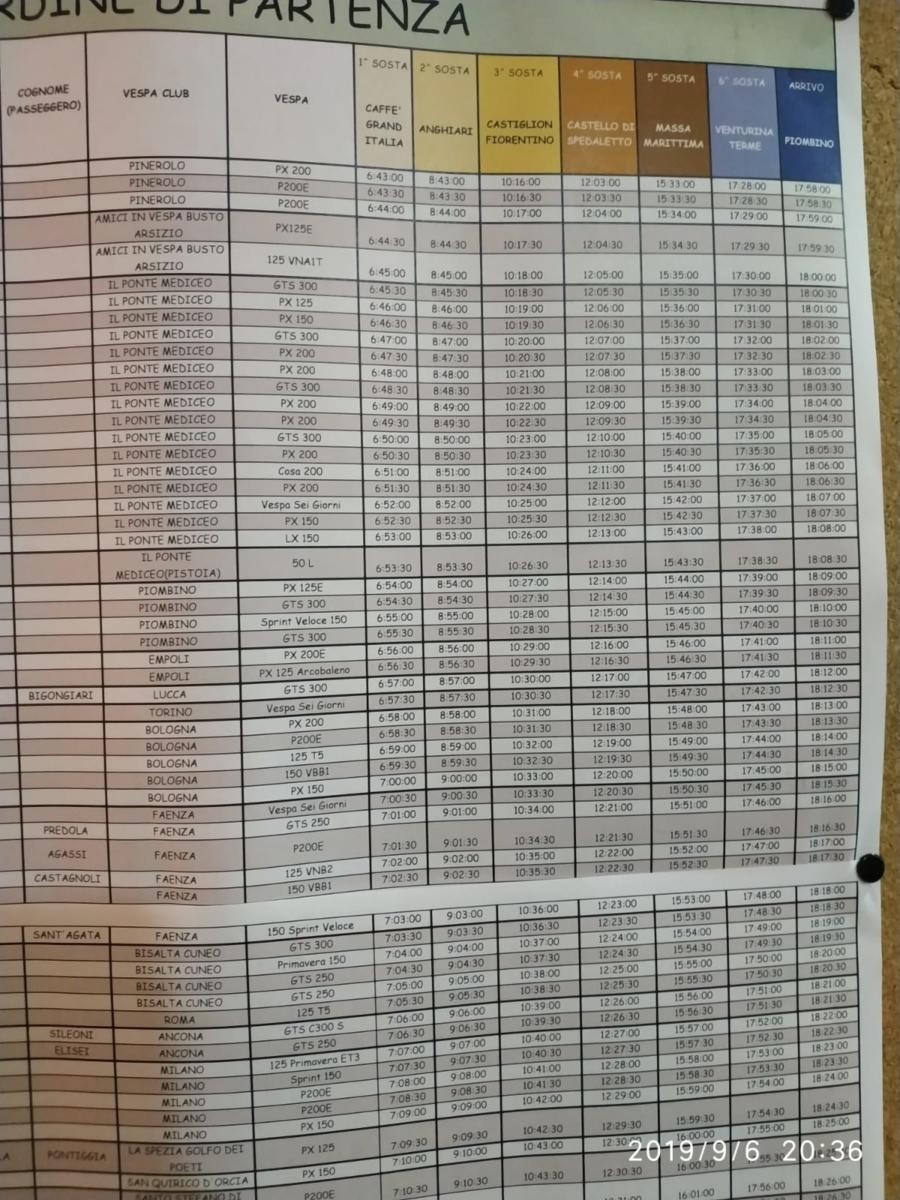 RDINE DI PARTENZA
COGNOME (PASSEGGERO) VESPA CLUB VESPA 1^ SOSTA CAFFE' GRAND ITALIA 2^ SOSTA ANGHIARI 3^ SOSTA CASTIGLION FIORENTINO 4^ SOSTA CASTELLO DI SPEDALETTO 5^ SOSTA MASSA MARITTIMA 6^ SOSTA VENTURINA TERME ARRIVO PIOMBINO
PINEROLO PX 200 6:43:00 8:43:00 10:16:00 12:03:00 15:33:00 17:28:00 17:58:00
PINEROLO P200E 6:43:30 8:43:30 10:16:30 12:03:30 15:33:30 17:28:30 17:58:30
PINEROLO P200E 6:44:00 8:44:00 10:17:00 12:04:00 15:34:00 17:29:00 17:59:00
AMICI IN VESPA BUSTO ARSIZIO PX125E 6:44:30 8:44:30 10:17:30 12:04:30 15:34:30 17:29:30 17:59:30
AMICI IN VESPA BUSTO ARSIZIO 125 VNA1T 6:45:00 8:45:00 10:18:00 12:05:00 15:35:00 17:30:00 18:00:00
IL PONTE MEDICEO GTS 300 6:45:30 8:45:30 10:18:30 12:05:30 15:35:30 17:30:30 18:00:30
IL PONTE MEDICEO PX 125 6:46:00 8:46:00 10:19:00 12:06:00 15:36:00 17:31:00 18:01:00
IL PONTE MEDICEO PX 150 6:46:30 8:46:30 10:19:30 12:06:30 15:36:30 17:31:30 18:01:30
IL PONTE MEDICEO GTS 300 6:47:00 8:47:00 10:20:00 12:07:00 15:37:00 17:32:00 18:02:00
IL PONTE MEDICEO PX 200 6:47:30 8:47:30 10:20:30 12:07:30 15:37:30 17:32:30 18:02:30
IL PONTE MEDICEO PX 200 6:48:00 8:48:00 10:21:00 12:08:00 15:38:00 17:33:00 18:03:00
IL PONTE MEDICEO GTS 300 6:48:30 8:48:30 10:21:30 12:08:30 15:38:30 17:33:30 18:03:30
IL PONTE MEDICEO PX 200 6:49:00 8:49:00 10:22:00 12:09:00 15:39:00 17:34:00 18:04:00
IL PONTE MEDICEO PX 200 6:49:30 8:49:30 10:22:30 12:09:30 15:39:30 17:34:30 18:04:30
IL PONTE MEDICEO GTS 300 6:50:00 8:50:00 10:23:00 12:10:00 15:40:00 17:35:00 18:05:00
IL PONTE MEDICEO PX 200 6:50:30 8:50:30 10:23:30 12:10:30 15:40:30 17:35:30 18:05:30
IL PONTE MEDICEO Cosa 200 6:51:00 8:51:00 10:24:00 12:11:00 15:41:00 17:36:00 18:06:00
IL PONTE MEDICEO PX 200 6:51:30 8:51:30 10:24:30 12:11:30 15:41:30 17:36:30 18:06:30
IL PONTE MEDICEO Vespa Sei Giorni 6:52:00 8:52:00 10:25:00 12:12:00 15:42:00 17:37:00 18:07:00
IL PONTE MEDICEO PX 150 6:52:30 8:52:30 10:25:30 12:12:30 15:42:30 17:37:30 18:07:30
IL PONTE MEDICEO LX 150 6:53:00 8:53:00 10:26:00 12:13:00 15:43:00 17:38:00 18:08:00
IL PONTE MEDICEO(PISTOIA) 50 L 6:53:30 8:53:30 10:26:30 12:13:30 15:43:30 17:38:30 18:08:30
PIOMBINO PX 125E 6:54:00 8:54:00 10:27:00 12:14:00 15:44:00 17:39:00 18:09:00
PIOMBINO GTS 300 6:54:30 8:54:30 10:27:30 12:14:30 15:44:30 17:39:30 18:09:30
PIOMBINO Sprint Veloce 150 6:55:00 8:55:00 10:28:00 12:15:00 15:45:00 17:40:00 18:10:00
PIOMBINO GTS 300 6:55:30 8:55:30 10:28:30 12:15:30 15:45:30 17:40:30 18:10:30
EMPOLI PX 200E 6:56:00 8:56:00 10:29:00 12:16:00 15:46:00 17:41:00 18:11:00
EMPOLI PX 125 Arcobaleno 6:56:30 8:56:30 10:29:30 12:16:30 15:46:30 17:41:30 18:11:30
BIGONGIARI LUCCA GTS 300 6:57:00 8:57:00 10:30:00 12:17:00 15:47:00 17:42:00 18:12:00
TORINO Vespa Sei Giorni 6:57:30 8:57:30 10:30:30 12:17:30 15:47:30 17:42:30 18:12:30
BOLOGNA PX 200 6:58:00 8:58:00 10:31:00 12:18:00 15:48:00 17:43:00 18:13:00
BOLOGNA P200E 6:58:30 8:58:30 10:31:30 12:18:30 15:48:30 17:43:30 18:13:30
BOLOGNA 125 T5 6:59:00 8:59:00 10:32:00 12:19:00 15:49:00 17:44:00 18:14:00
BOLOGNA 150 VBB1 6:59:30 8:59:30 10:32:30 12:19:30 15:49:30 17:44:30 18:14:30
BOLOGNA PX 150 7:00:00 9:00:00 10:33:00 12:20:00 15:50:00 17:45:00 18:15:00
FAENZA Vespa Sei Giorni 7:00:30 9:00:30 10:33:30 12:20:30 15:50:30 17:45:30 18:15:30
PREDOLA FAENZA GTS 250 7:01:00 9:01:00 10:34:00 12:21:00 15:51:00 17:46:00 18:16:00
AGASSI FAENZA P200E 7:01:30 9:01:30 10:34:30 12:21:30 15:51:30 17:46:30 18:16:30
CASTAGNOLI FAENZA 125 VNB2 7:02:00 9:02:00 10:35:00 12:22:00 15:52:00 17:47:00 18:17:00
FAENZA 150 VBB1 7:02:30 9:02:30 10:35:30 12:22:30 15:52:30 17:47:30 18:17:30
SANT'AGATA FAENZA 150 Sprint Veloce 7:03:00 9:03:00 10:36:00 12:23:00 15:53:00 17:48:00 18:18:00
BISALTA CUNEO GTS 300 7:03:30 9:03:30 10:36:30 12:23:30 15:53:30 17:48:30 18:18:30
BISALTA CUNEO Primavera 150 7:04:00 9:04:00 10:37:00 12:24:00 15:54:00 17:49:00 18:19:00
BISALTA CUNEO GTS 250 7:04:30 9:04:30 10:37:30 12:24:30 15:54:30 17:49:30 18:19:30
BISALTA CUNEO GTS 250 7:05:00 9:05:00 10:38:00 12:25:00 15:55:00 17:50:00 18:20:00
ROMA 125 T5 7:05:30 9:05:30 10:38:30 12:25:30 15:55:30 17:50:30 18:20:30
SILEONI ANCONA GTS C300 S 7:06:00 9:06:00 10:39:00 12:26:00 15:56:00 17:51:00 18:21:00
ELISEI ANCONA GTS 250 7:06:30 9:06:30 10:39:30 12:26:30 15:56:30 17:51:30 18:21:30
MILANO 125 Primavera ET3 7:07:00 9:07:00 10:40:00 12:27:00 15:57:00 17:52:00 18:22:00
MILANO Sprint 150 7:07:30 9:07:30 10:40:30 12:27:30 15:57:30 17:52:30 18:22:30
MILANO P200E 7:08:00 9:08:00 10:41:00 12:28:00 15:58:00 17:53:00 18:23:00
MILANO P200E 7:08:30 9:08:30 10:41:30 12:28:30 15:58:30 17:53:30 18:23:30
MILANO PX 150 7:09:00 9:09:00 10:42:00 12:29:00 15:59:00 17:54:00 18:24:00
A PONTIGGIA LA SPEZIA GOLFO DEI POETI PX 125 7:09:30 9:09:30 10:42:30 12:29:30 15:59:30 17:54:30 18:24:30
SAN QUIRICO D'ORCIA PX 150 7:10:00 9:10:00 10:43:00 12:30:00 16:00:00 17:55:00 18:25:00
SANTO STEFANO DI P200E 7:10:30 9:10:30 10:43:30 12:30:30 16:00:30 17:55:30
16:01:00 17:56:00 18:26:00
2019/9/6 20:36